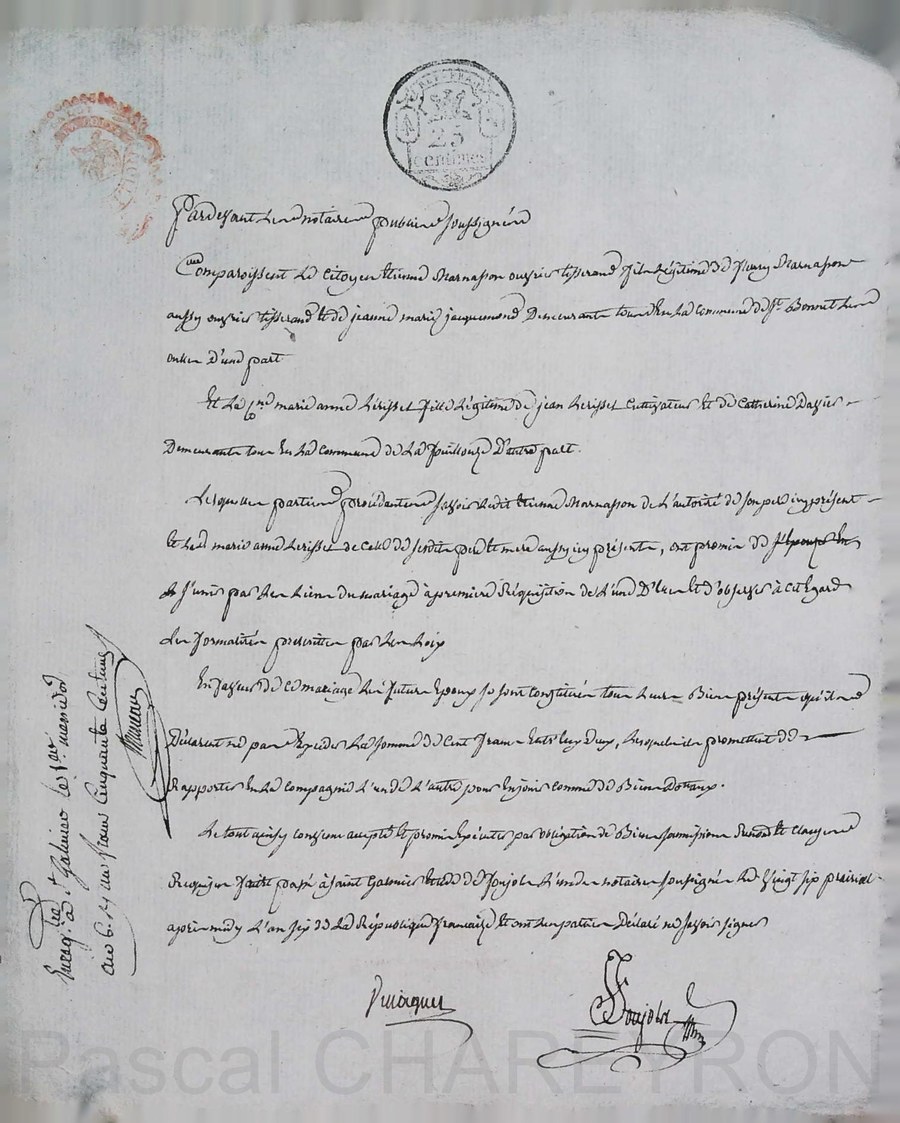 REP. FRA.
25
centimes
Pardevant les notaires publics soussignés
Comparoissent le Citoyen Etienne Marnasson ouvrier tisserand fils légitime de fleury Marnasson
aussy ouvrier tisserand et de jeanne marie jacquemond Demeurants tous en la Commune de St. Bonnet les
oules D'une part
Et la Cne marie anne Lerisset fille légitime de jean Lerisset Cultivateur et de Catherine
Demeurants tous en la Commune de la fouillouze D'autre part.
Lesquelles parties procédantes savoir ledit Etienne Marnasson de l'autorité de son père icy présent
et la de marie anne Lerisset de Celle de sesdits père et mère aussy icy présents, ont promis de
s'unir par les liens du mariage à première Réquisition de l'une D'elles et d'observer à cet Egard
les formalités prescrittes par les Loix
En faveur de ce mariage les futurs Epoux se sont Constitués tous leurs Biens présents qu'ils
Déclarent ne pas Exceder la somme de Cent francs Entr'Eux Deux, lesquels ils promettent de
Rapporter en la Compagnie l'un de l'autre pour en jouir comme de Biens Dotaux.
Le tout ainsy Convenu accepté et promis Exécuter par obligation de Biens soumissions Renon. et Clauses
Requises fait et passé à Saint Galmier Etude de Poujols l'un des notaires soussignés le vingt six prairial
après midy l'an six de la République française et ont les parties Déclaré ne savoir signer
Poujols
Enreg.tré à St Galmier le 1er messidor
an 6. Reçu un franc Cinquante Centimes
Pascal CHAREYRON